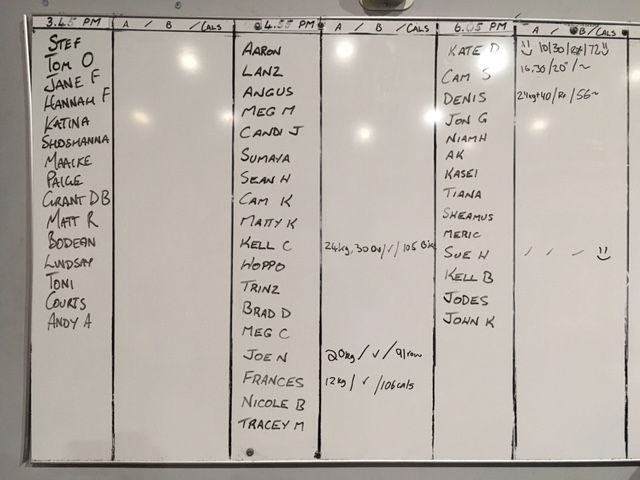 3.45 PM A / B / CALS
STEF
TOM O
JANE F
HANNAH F
KATINA
SHOSHANNA
MAACKE
PAIGE
GRANT DB
MATT R
BODEAN
LINDSAY
TONI
COURTS
ANDY A
4.55 PM A / B / CALS
AARON
LANZ
ANGUS
MEG M
CANDI J
SUMAYA
SEAN H
CAM K
MATTY K
KELL C 24kg, 30 / ✓ / 105
HOPPO
TRINZ
BRAD D
MEG C
JOE N 20kg / ✓ / 91 row
FRANCES 12kg / ✓ / 106 cals
NICOLE B
TRACEY M
6.05 PM A / B / CALS
KATE D 10/30/ /72
CAM S 16.30/20"/~
DENIS 24kg+40/Rx/56~
JON G
NIAMH
AK
KASEI
TIANA
SHEAMUS
MERIC
SUE H / / /
KELL B
JODES
JOHN K